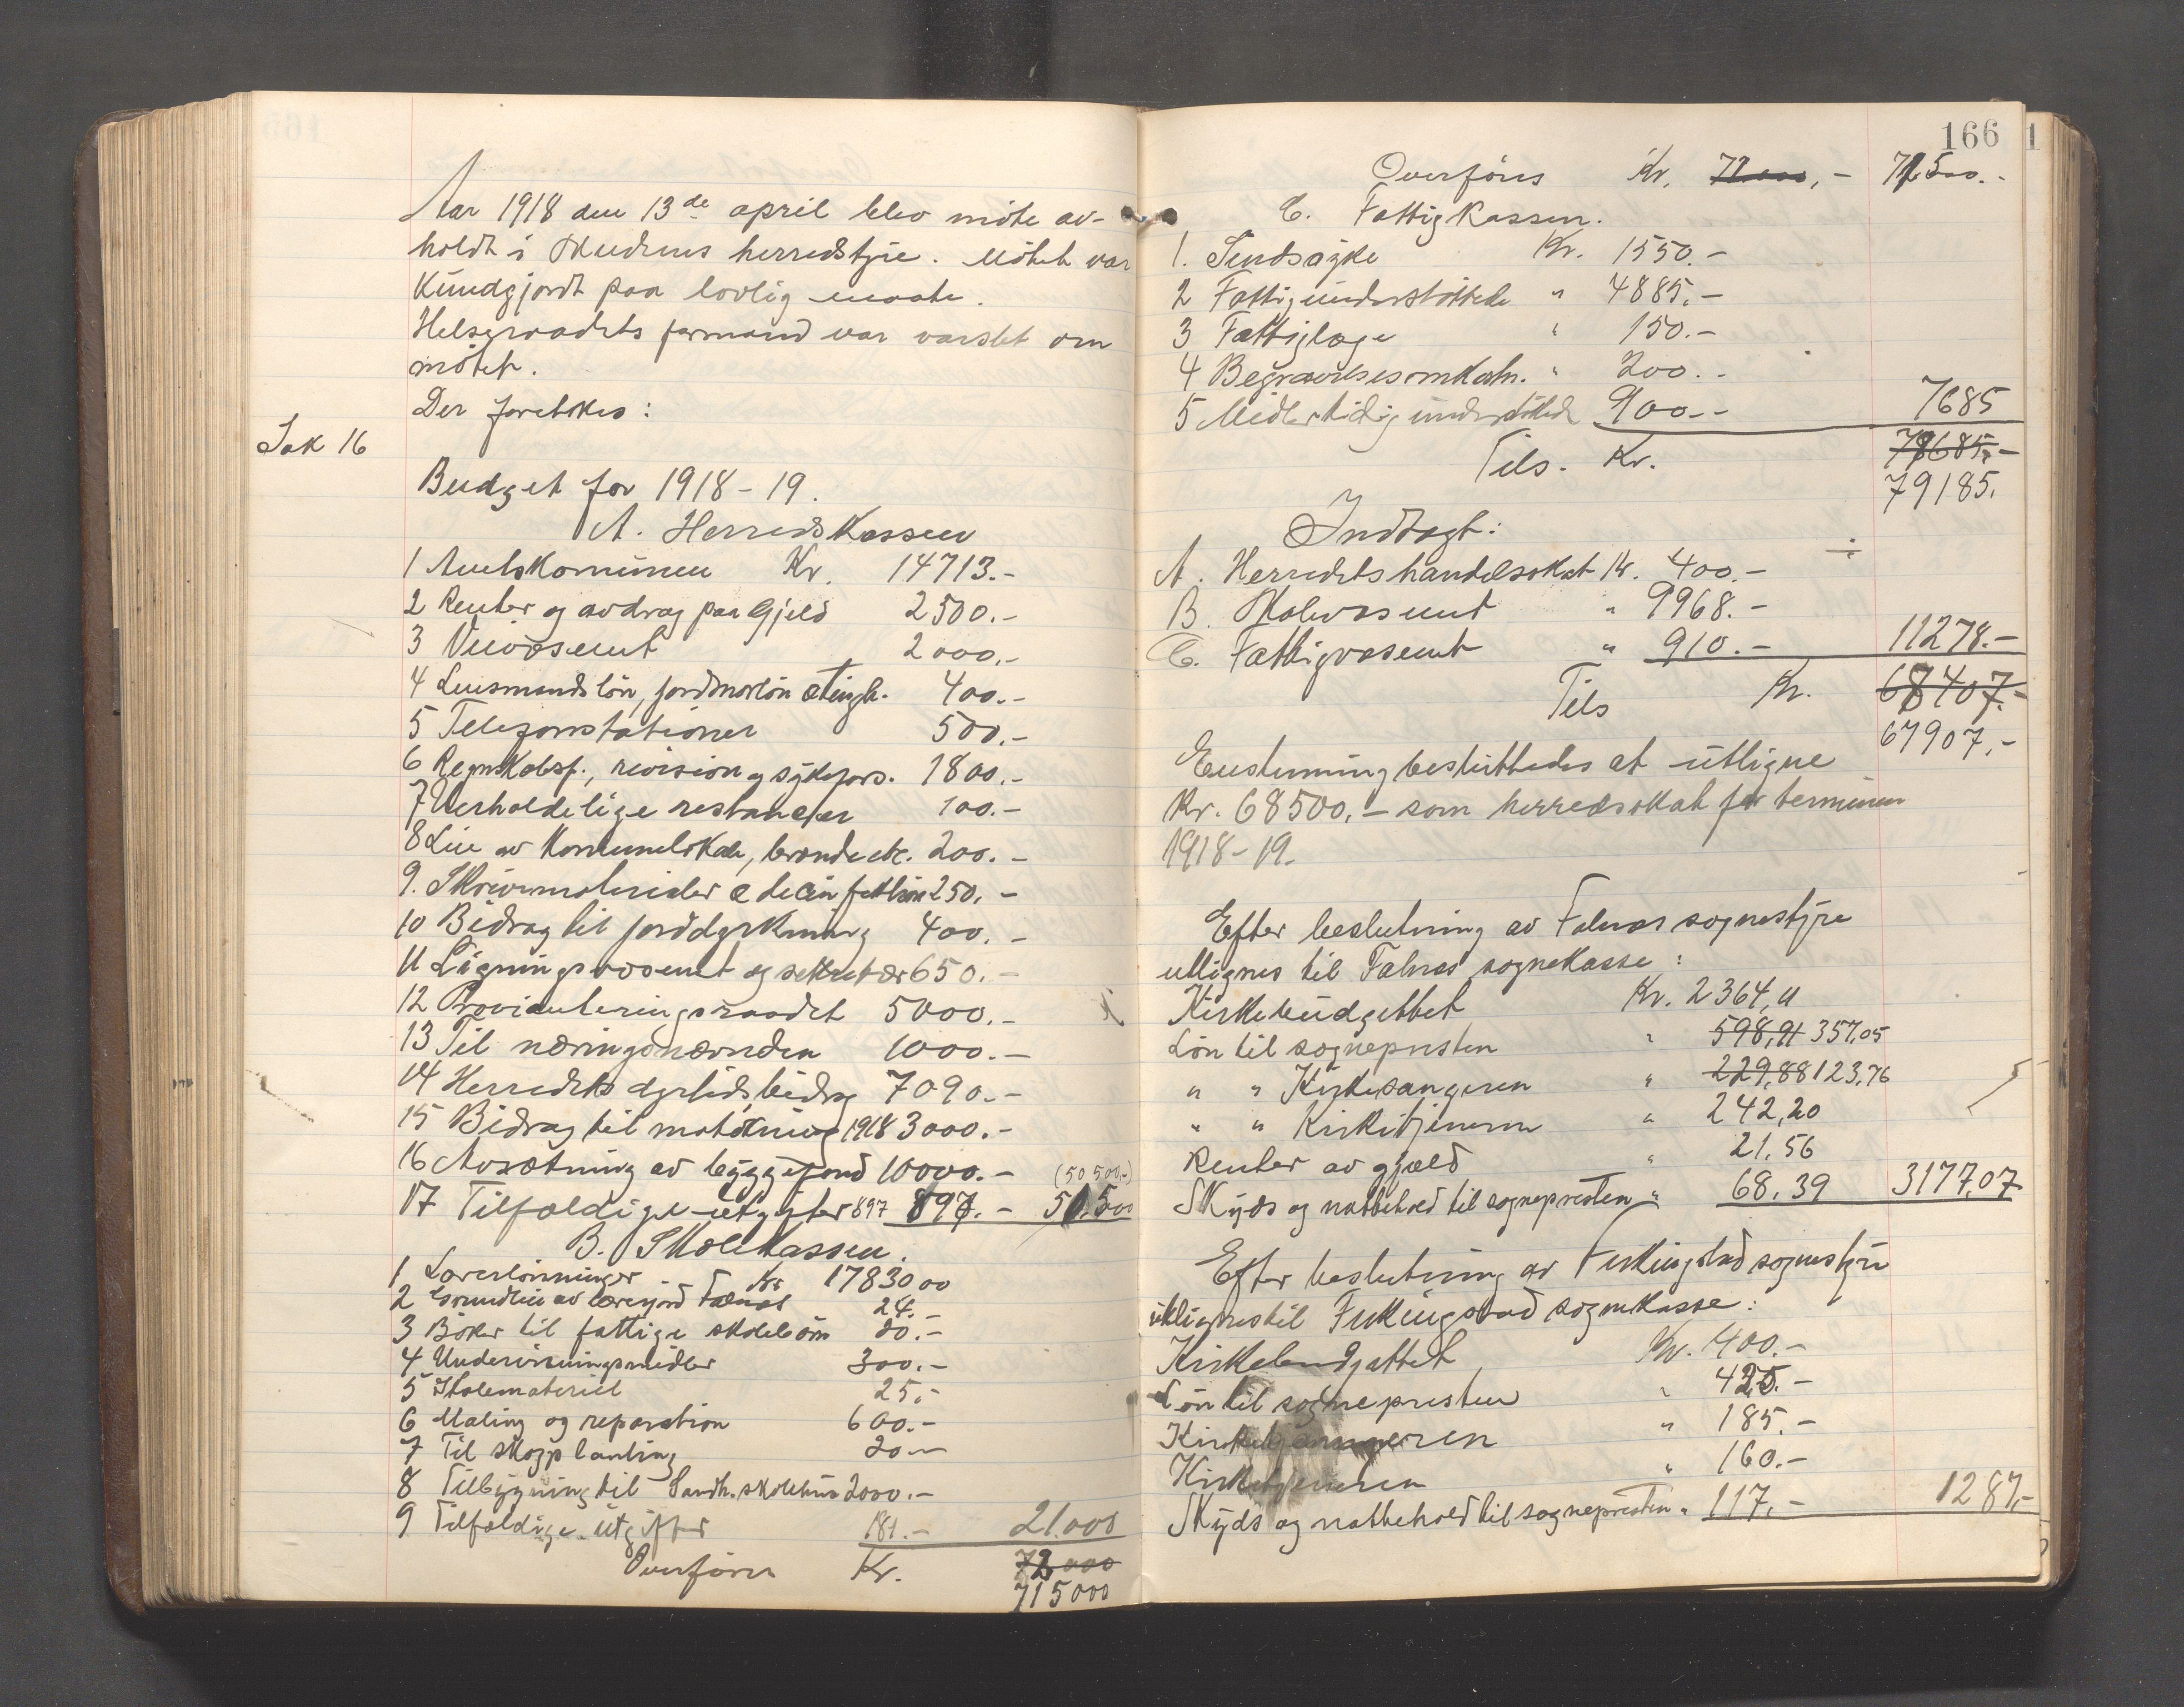 Aar 1918 den 13de april blev möte av-
holdt i Skudenes herredstyre. Mötet var
kundgjordt paa lovlig maate.
Helseraadets formand var varslet om
mötet.
Der foretokes:
Sak 16
Budget for 1918-19.
A. Herredskassen
1 Amtskommunen Kr. 14713.-
2 Renter og avdrag paa Gjeld 2500.-
3 Veivæsenet 2000.-
4 Lensmandslön, jordmorlön & Tingh. 400.-
5 Telefonstationer 500.-
6 Regnskabsf., revision og sykefors. 1800.-
7 Uerholdelige restancer 100.-
8 Leie av kommunelokale, brænde etc. 200.-
9. Skrivematerialer & decinfektion 250.-
10 Bidrag til jorddyrkning 400.-
11 Ligningsvæsenet og sekretær 650.-
12 Provianteringsraadet 5000.-
13 Til næringsnævnden 1000.-
14 Herredets dyrtidsbidrag 7090.-
15 Bidrag til matökning 1918 3000.-
16 Avsætning av byggefond 10000.- (50500.-)
17 Tilfældige utgifter 897 897.- 50.500
B. Skolekassen.
1 Lærerlönninger Kr 17830 00
2 Grundleie av lærerjord Falnæs 24.-
3 Böker til fattige skolebörn 20.-
4 Undervisningsmidler 300.-
5 Skolemateriel 25.-
6 Maling og reparation 600.-
7 Til skogplanting 20.-
8 Tilbygning til Sandh. skolehus 2000.-
9 Tilfældige utgifter 181.- 21.000
Overföres Kr. 72000
715000
166
Overföres Kr. 72000,- 71500.-
C. Fattigkassen.
1. Sindssyke Kr. 1550.-
2 Fattigunderstöttede " 4885.-
3 Fattiglæge " 150.-
4 Begravelsesomkostn. " 200.-
5 Midlertidig understöttede 900.- 7685
Tils. Kr. 79685.-
79185.
Indtægt:
A. Herredets handelsskat Kr. 400.- ÷
B. Skolevæsenet " 9968.-
C. Fattigvæsenet " 910.- 11278.-
Tils Kr. 68407.-
67907.-
Enstemmig besluttedes at utligne
Kr. 68500.- som herredsskat for terminen
1918-19.
Efter beslutning av Falnæs sognestyre
utlignes til Falnæs sognekasse:
Kirkebudgettet Kr. 2364,11
Lön til sognepresten " 598,91 357,05
" " Kirkesangeren " 229,88 123,76
" " Kirketjeneren " 242,20
Renter av gjæld " 21.56
Skyds og nattehold til sognepresten " 68.39 3177.07
Efter beslutning av Ferkingstad sognestyre
utlignes til Ferkingstad sognekasse:
Kirkebudgettet Kr. 400.-
Lön til sognepresten " 425.-
Kirkesangeren " 185.-
Kirketjeneren " 160.-
Skyds og nattehold til sognepresten " 117.- 1287,-